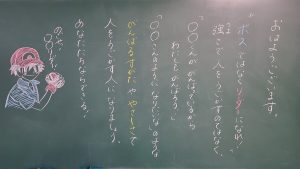 おはようございます。
"ボス"ではない"リーダー"になれ!
強さで人をうごかすのではなく、
「○○さんががんばっているから
わたしもがんばろう」
「○○さんのようになりたいな」のような
がんばるすがたややさしさで
人をうごかす人になりましょう。
あなたたちならできる!